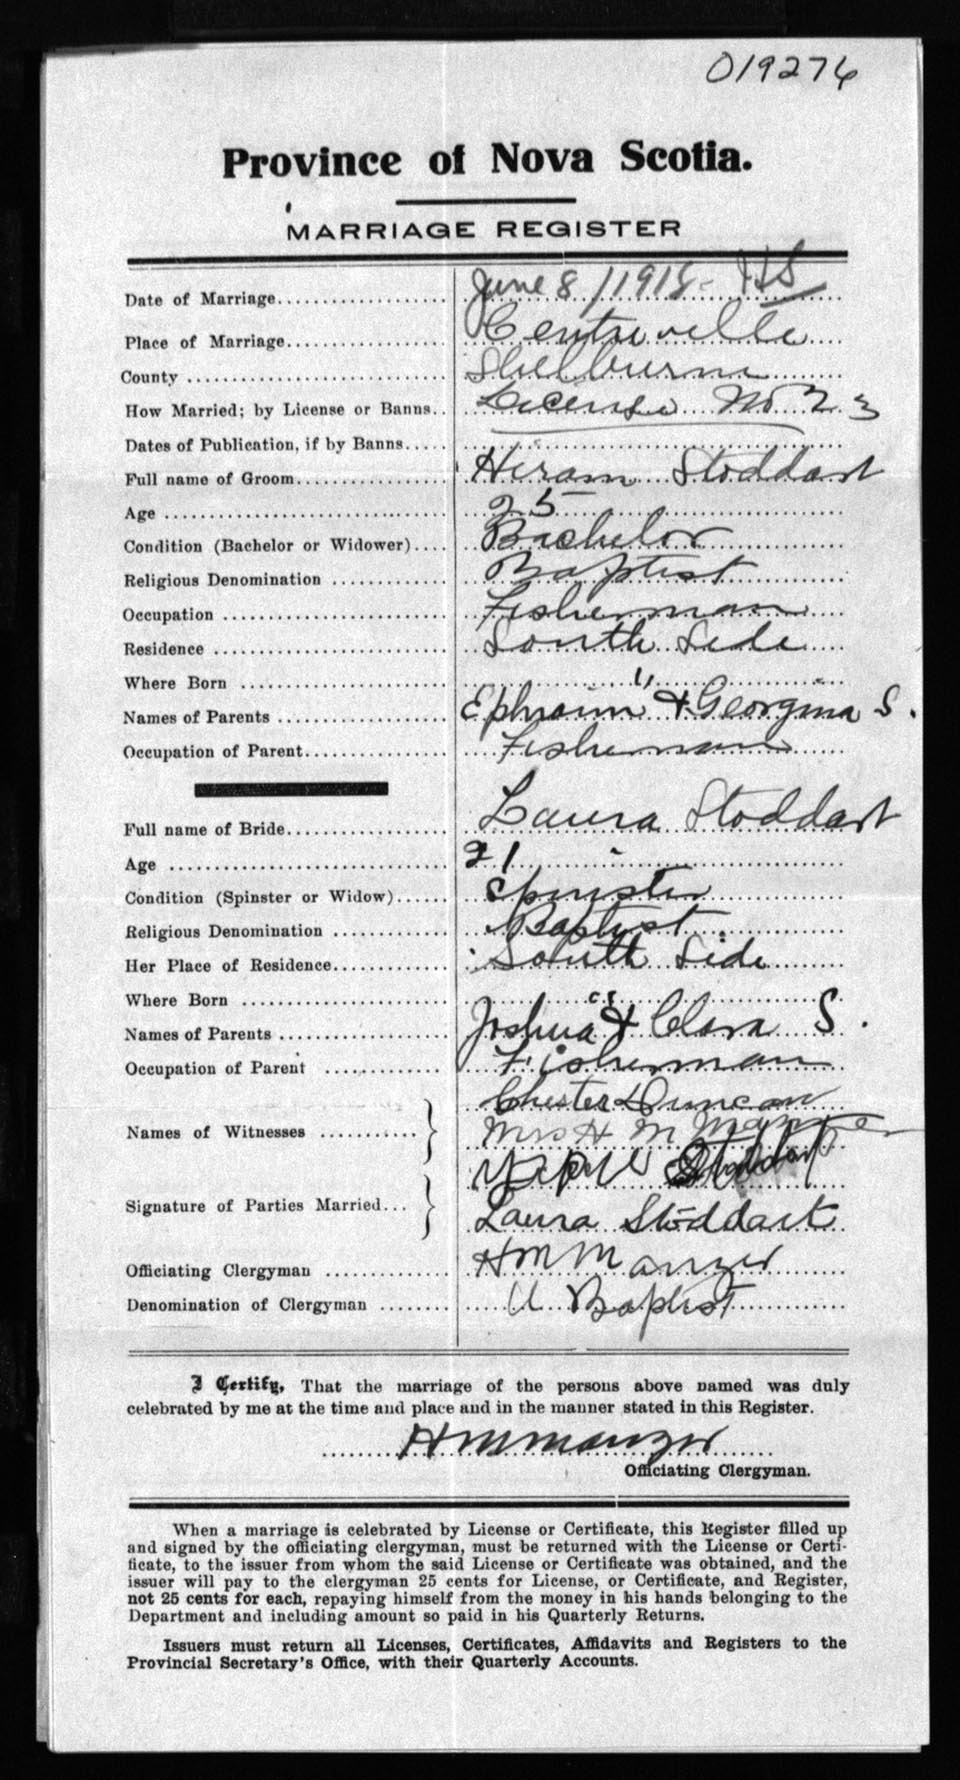 019276
Province of Nova Scotia.
MARRIAGE REGISTER
Date of Marriage June 8/1918 - HS
Place of Marriage Centreville
County Shelburne
How Married; by License or Banns License No 23
Dates of Publication, if by Banns
Full name of Groom Hiram Stoddart
Age 25
Condition (Bachelor or Widower) Bachelor
Religious Denomination Baptist
Occupation Fisherman
Residence South Side
Where Born "
Names of Parents Ephraim & Georgina S.
Occupation of Parent Fisherman
Full name of Bride Laura Stoddart
Age 21
Condition (Spinster or Widow) Spinster
Religious Denomination Baptist
Her Place of Residence South Side
Where Born "
Names of Parents Joshua & Clara S.
Occupation of Parent Fisherman
Names of Witnesses Chester Duncan
Mrs H M Manzer
Signature of Parties Married Stoddart
Laura Stoddart
Officiating Clergyman H M Manzer
Denomination of Clergyman U Baptist
I Certify, That the marriage of the persons above named was duly
celebrated by me at the time and place and in the manner stated in this Register.
H M Manzer
Officiating Clergyman.
When a marriage is celebrated by License or Certificate, this Register filled up
and signed by the officiating clergyman, must be returned with the License or Certi-
ficate, to the issuer from whom the said License or Certificate was obtained, and the
issuer will pay to the clergyman 25 cents for License, or Certificate, and Register,
not 25 cents for each, repaying himself from the money in his hands belonging to the
Department and including amount so paid in his Quarterly Returns.
Issuers must return all Licenses, Certificates, Affidavits and Registers to the
Provincial Secretary's Office, with their Quarterly Accounts.